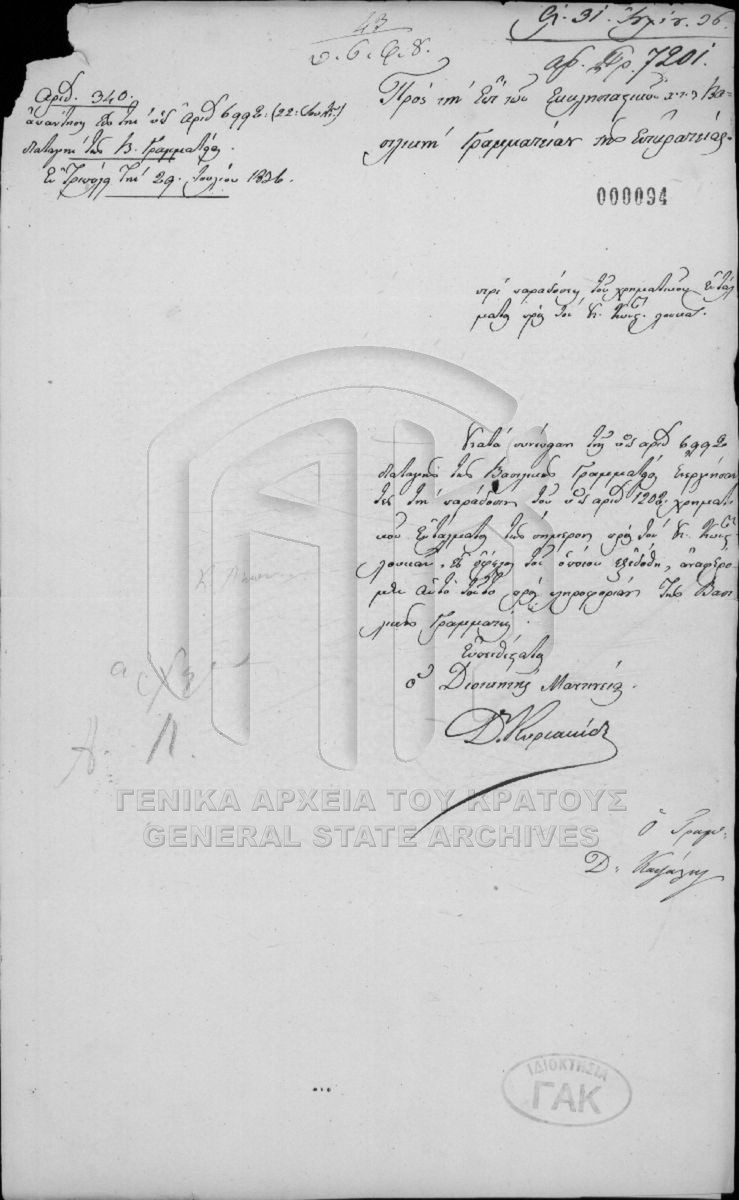 43
31. Ἰουλίου. 36.
ἀρ. Πρ. 7201.
Ἀριθ. 340.
ἀπάντησις εἰς τὴν ὑπ' ἀριθ 6992: (22: Ἰουλ:)
διαταγὴν τῆς Β. Γραμματείας.
Ἐν Τριπόλει τὴν 29. Ἰουλίου 1836.
Πρὸς τὴν ἐπὶ τῶν Ἐκκλησιαστικῶν κ.τ.λ. Βα-
σιλικὴν Γραμματείαν τῆς Ἐπικρατείας.
000094
περὶ παραδόσεως τοῦ χρηματικοῦ ἐντάλ
ματος πρὸς τὸν Κ. Λουκᾶν.
Κατὰ συνέπειαν τῆς ὑπ' ἀριθ 6992
διαταγῆς τῆς Βασιλικῆς Γραμματείας ἐνεργήσαν
τες τὴν παράδοσιν τοῦ ὑπ' ἀριθ 1202: χρηματι
κοῦ ἐντάλματος τῆς σήμερον πρὸς τὸν Κ.
Λουκᾶν, εἰς ὄφελος τοῦ ὁποίου ἐξεδόθη, ἀναφέρο-
μεν αὐτὸ τοῦτο πρὸς πληροφορίαν τῆς Βασι
λικῆς Γραμματείας.
Εὐπειθέστατος
ὁ Διοικητὴς Μαντινείας.
Δ. Κυριακίδης
ὁ Γραμμ:
Δ.
ΓΕΝΙΚΑ ΑΡΧΕΙΑ ΤΟΥ ΚΡΑΤΟΥΣ
GENERAL STATE ARCHIVES
ΙΔΙΟΚΤΗΣΙΑ
ΓΑΚ